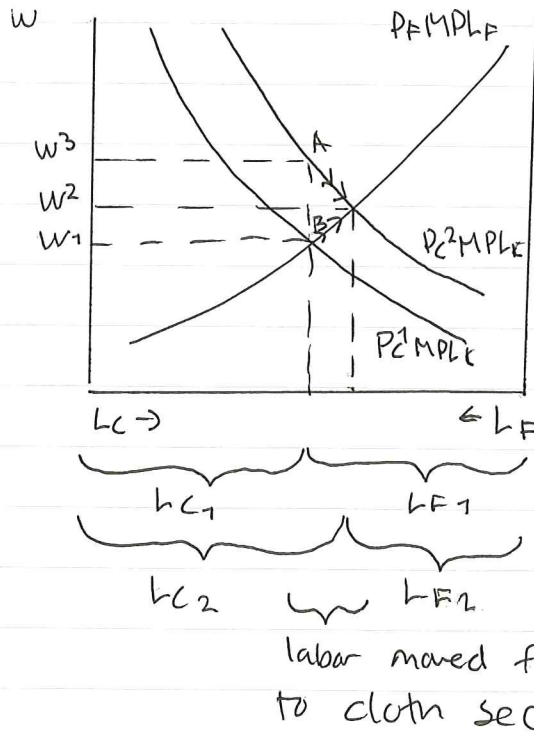 W
PFMPLF
W3
A
W2
B
W1
PC2MPLC
PC1MPLC
LC → ← LF
LC1 LF1
LC2 LF2
labor moved f
to cloth sec